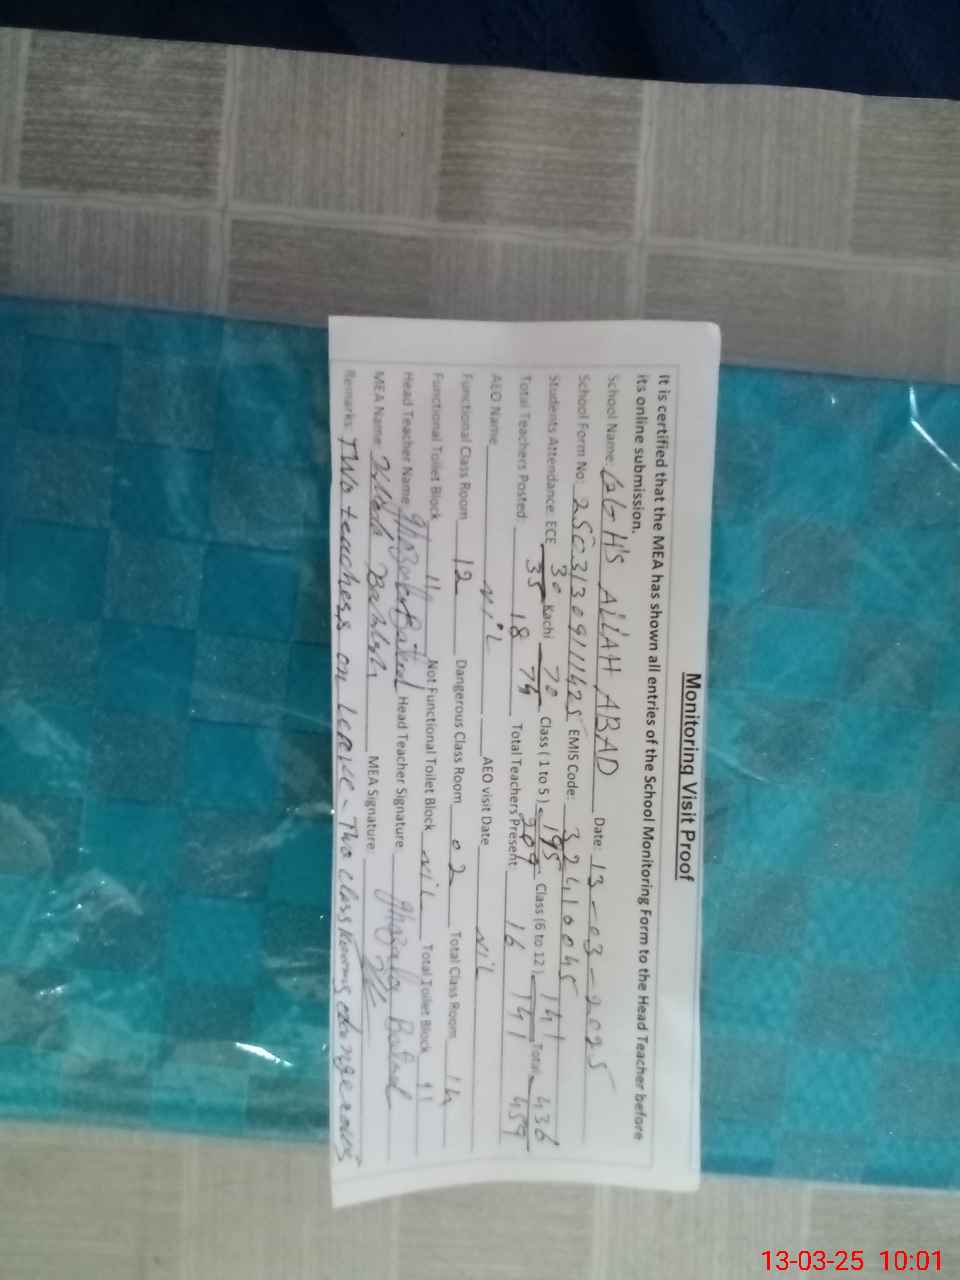 Monitoring Visit Proof
It is certified that the MEA has shown all entries of the School Monitoring Form to the Head Teacher before
its online submission.
School Name: GGHS ALLAH ABAD Date: 13-03-2025
School Form No: 25031309111425 EMIS Code: 32410045
Students Attendance: ECE 30 Kachi 70 Class (1 to 5) 195 Class (6 to 12) 141 Total 436
35 74 209 141 459
Total Teachers Posted: 18 Total Teachers Present: 16
AEO Name NiL AEO visit Date NiL
Functional Class Room 12 Dangerous Class Room 02 Total Class Room 14
Functional Toilet Block 11 Not Functional Toilet Block NiL Total Toilet Block 11
Head Teacher Name Ghazala Batool Head Teacher Signature Ghazala Batool
MEA Name: Bakhsh MEA Signature:
Remarks: Two teachers on leave - Two class Rooms dangerous
13-03-25 10:01